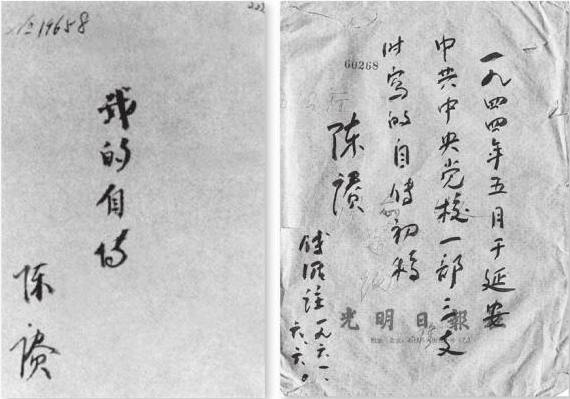 19658
我的自传
陈赓
60268
一九四四年五月于延安
中共中央党校一部三支
时写的自传初稿
陈赓
傅涯注 一九六一.
六.六.
光明日報